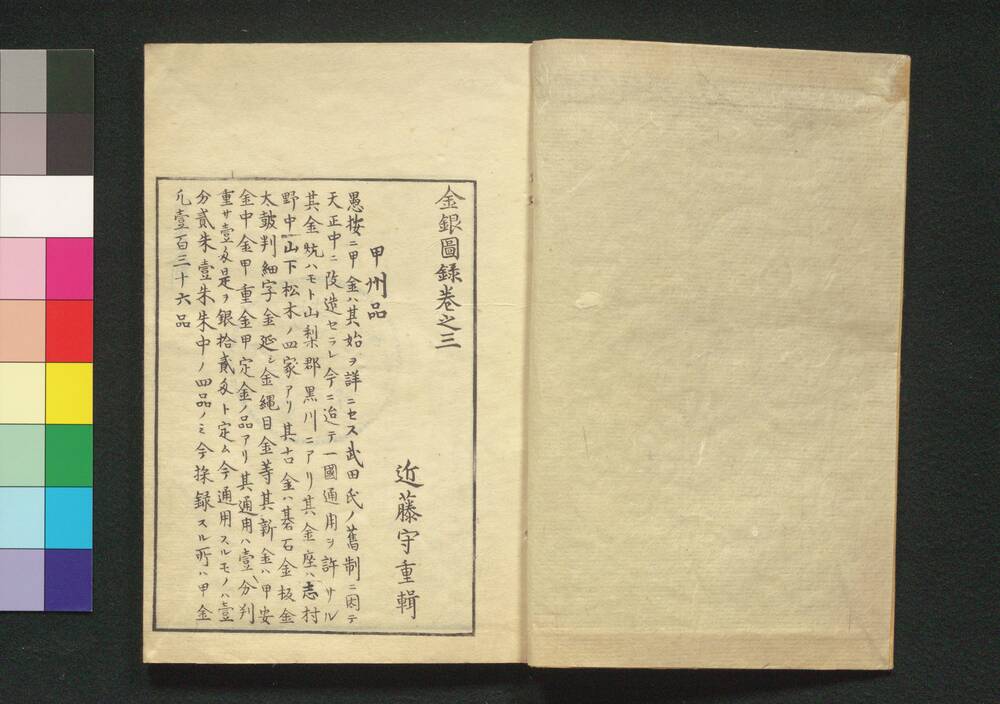 金銀圖録巻之三
近藤守重輯
甲州品
愚按ニ甲金ハ其始ヲ詳ニセス武田氏ノ舊制ニ因テ
天正中ニ改造セラレ今ニ迨テ一國通用ヲ許サル
其金坑ハモト山梨郡黒川ニアリ其金座ハ志村
野中山下松木ノ四家アリ其古金ハ碁石金板金
太皷判細字金延シ金縄目金等其新金ハ甲安
金中金甲重金甲定金ノ品アリ其通用ハ壹分判
重サ壹匁是ヲ銀拾貳匁ト定ム今通用スルモノハ壹
分貳朱壹朱朱中ノ四品ノミ今採録スル所ハ甲金
凡壹百三十六品